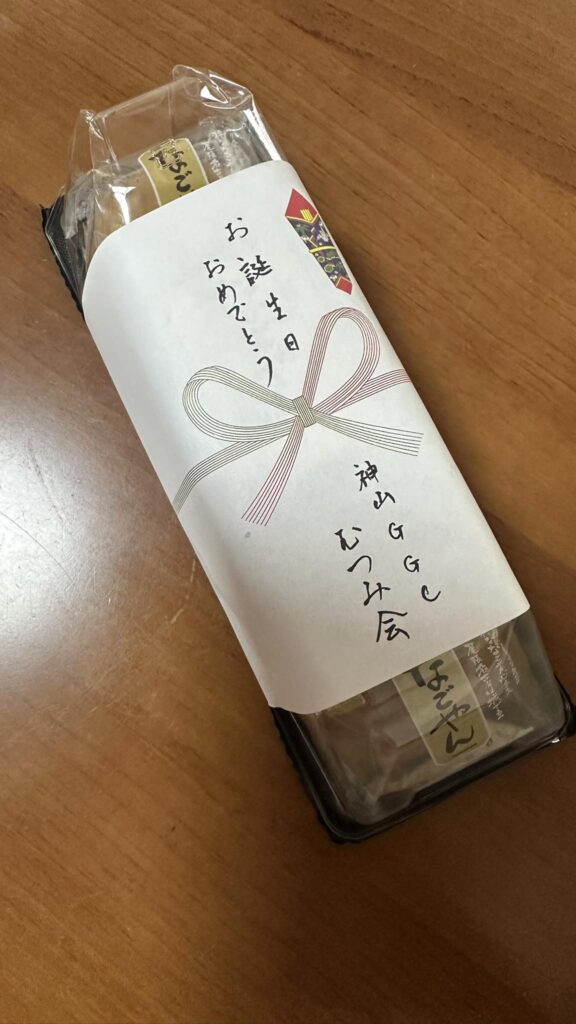 なご
お誕生日
おめでとう
神山GGC
むつみ会
なごやん